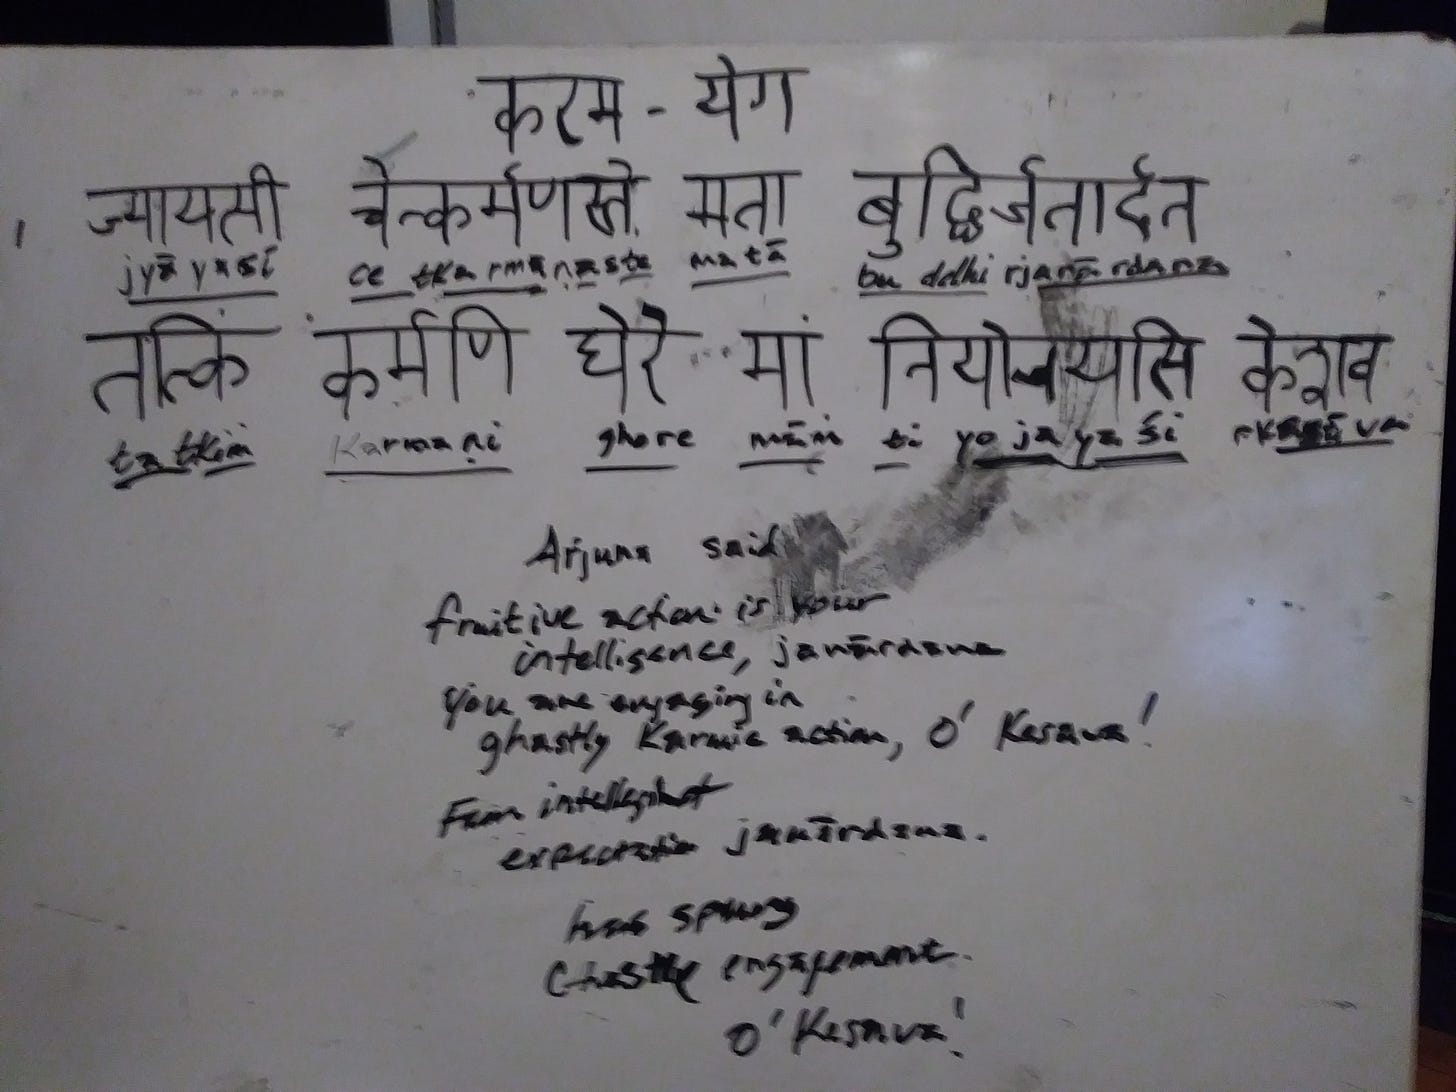 करम - येग
1 ज्यायती चेत्कर्मणस्ते मता बुद्धिर्जतार्दत
jyā yasi ce tka rma ṇa ste ma tā bu ddhi rja nā rdana
तत्किं कर्मणि घेरे मां नियोजयसि केशव
ta tkiṁ Karma ṇi ghore māṁ ti yo ja ya śi
Arjuna said
fruitive action is your
intelligence, janārdana
you are engaging in
ghastly Karmic action, O' Kesava!
expectation janārdana.
has sprung
engagement.
O' Kesava!